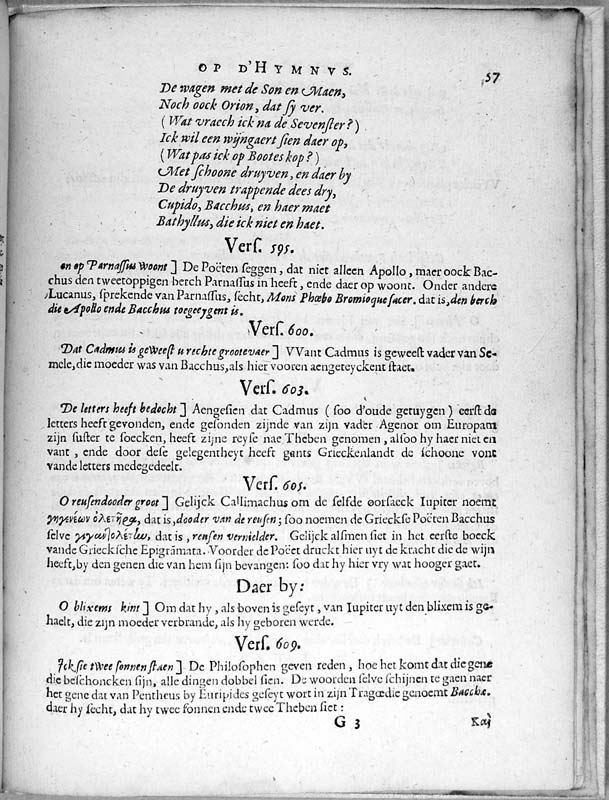 OP D'HYMNVS. 57
De wagen met de Son en Maen,
Noch oock Orion, dat ſy ver.
(Wat vraech ick na de Sevenſter?)
Ick wil een wijngaert ſien daer op,
(Wat pas ick op Bootes kop?)
Met ſchoone druyven, en daer by
De druyven trappende dees dry,
Cupido, Bacchus, en haer maet
Bathyllus, die ick niet en haet.
Verſ. 595.
en op Parnaſſus woont] De Poëten ſeggen, dat niet alleen Apollo, maer oock Bac-
chus den tweetoppigen berch Parnaſſus in heeft, ende daer op woont. Onder andere
Lucanus, ſprekende van Parnaſſus, ſecht, Mons Phœbo Bromioque ſacer. dat is, den berch
die Apollo ende Bacchus toegeeygent is.
Verſ. 600.
Dat Cadmus is geweeſt u rechte grootevaer] VVant Cadmus is geweeſt vader van Se-
mele, die moeder was van Bacchus, als hier vooren aengeteyckent ſtaet.
Verſ. 603.
De letters heeft bedocht] Aengeſien dat Cadmus (ſoo d'oude getuygen) eerſt de
letters heeft gevonden, ende geſonden zijnde van zijn vader Agenor om Europam
zijn ſuſter te ſoecken, heeft zijne reyſe nae Theben genomen, alſoo hy haer niet en
vant, ende door deſe gelegentheyt heeft gants Grieckenlandt de ſchoone vont
vande letters medegedeelt.
Verſ. 605.
O reuſendooder groot] Gelijck Callimachus om de ſelfde oorſaeck Iupiter noemt
γηγενέων ὀλετῆρα, dat is, dooder van de reuſen; ſoo noemen de Grieckſe Poëten Bacchus
ſelve γιγαντολέτην, dat is, reuſen vernielder. Gelijck alſmen ſiet in het eerſte boeck
vande Grieckſche Epigrāmata. Voorder de Poëet druckt hier uyt de kracht die de wijn
heeft, by den genen die van hem ſijn bevangen: ſoo dat hy hier vry wat hooger gaet.
Daer by:
O blixems kint] Om dat hy, als boven is geſeyt, van Iupiter uyt den blixem is ge-
haelt, die zijn moeder verbrande, als hy geboren werde.
Verſ. 609.
Ick ſie twee ſonnen ſtaen] De Philoſophen geven reden, hoe het komt dat die gene
die beſchoncken ſijn, alle dingen dobbel ſien. De woorden ſelve ſchijnen te gaen naer
het gene dat van Pentheus by Euripides geſeyt wort in zijn Tragœdie genoemt Bacchæ.
daer hy ſecht, dat hy twee ſonnen ende twee Theben ſiet:
G 3 Καὶ